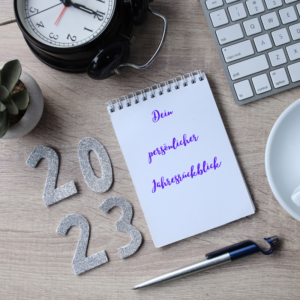 Dein
persönlicher
Jahresrückblick
20
23